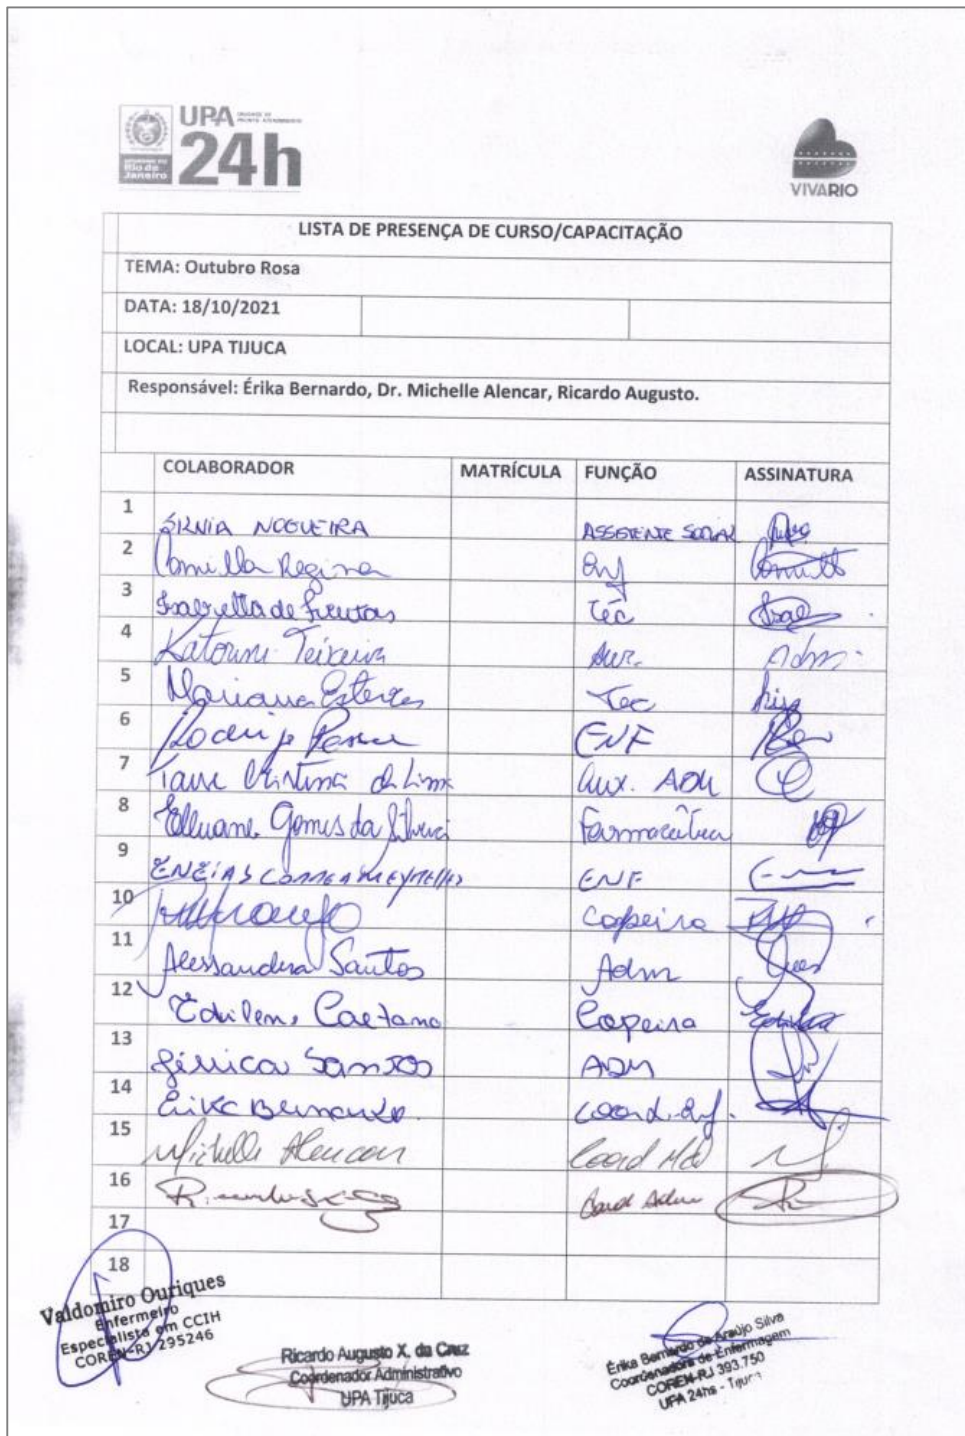 UPA UNIDADE DE PRONTO ATENDIMENTO
24h
GOVERNO DO
Rio de
Janeiro
VIVARIO
LISTA DE PRESENÇA DE CURSO/CAPACITAÇÃO
TEMA: Outubro Rosa
DATA: 18/10/2021
LOCAL: UPA TIJUCA
Responsável: Érika Bernardo, Dr. Michelle Alencar, Ricardo Augusto.
COLABORADOR MATRÍCULA FUNÇÃO ASSINATURA
1 NOGUEIRA ASSISTENTE SOCIAL
2 Camilla Regina Enf
3 Isabella de Freitas Téc
4 Teixeira Aux. Adm.
5 Mariana Esteves Tec
6 ENF
7 Cristina de Lima Aux. ADM
8 Gomes da Farmacêutica
9 ENEIAS ENF
10 Copeira
11 Alessandra Santos Adm
12 Caetano Copeira
13 Jéssica Santos ADM
14 Erika Bernardo. Coord. Enf.
15 Michelle Alencar Coord Med
16 Coord Adm
17
18
Valdomiro Ouriques
Enfermeiro
Especialista em CCIH
COREN-RJ 295246
Ricardo Augusto X. da Cruz
Coordenador Administrativo
UPA Tijuca
Érika Bernardo de Araújo Silva
Coordenadora de Enfermagem
COREN-RJ 393.750
UPA 24hs - Tijuca